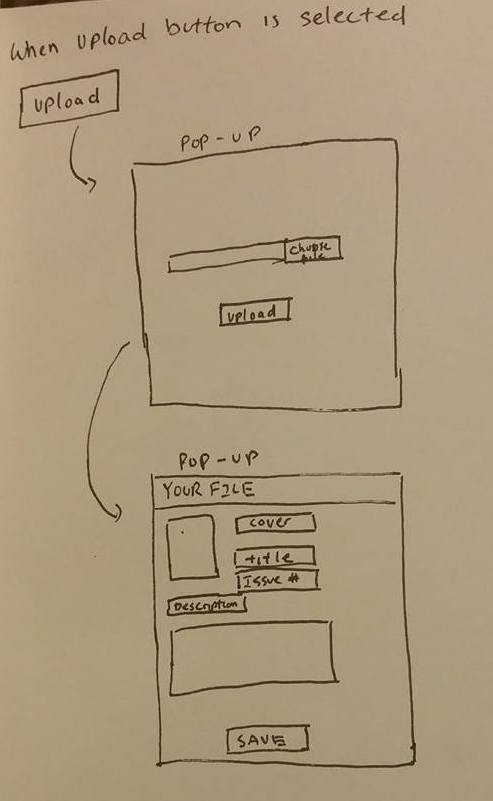 When upload button is selected
upload
POP-UP
choose
file
upload
POP-UP
YOUR FILE
cover
title
Issue #
Description
SAVE